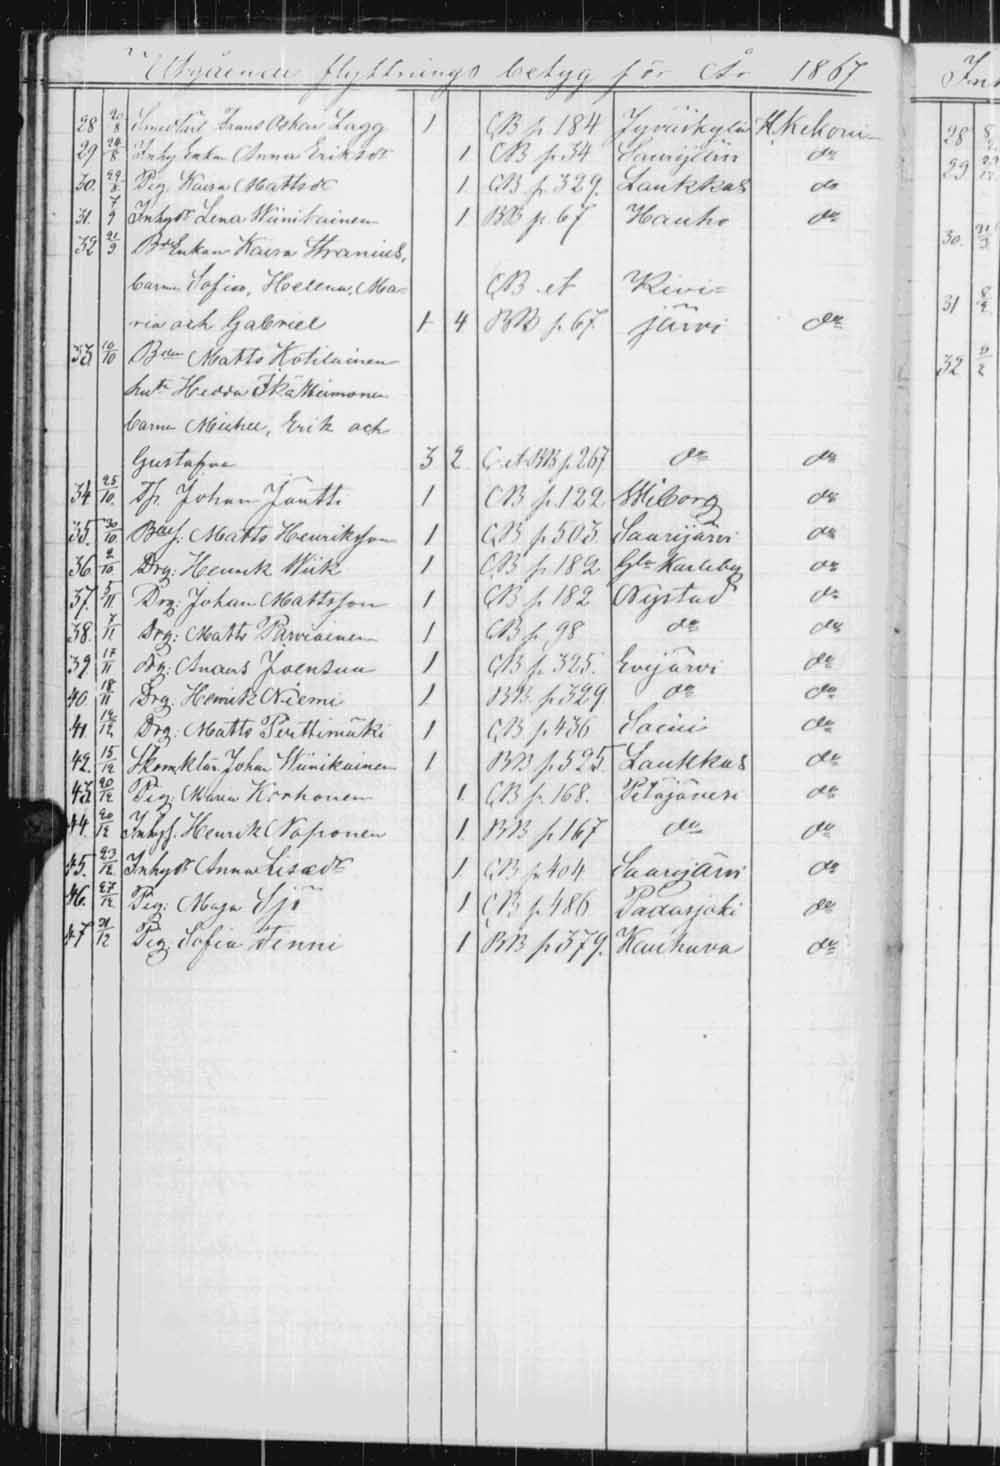 Utgående flyttnings betyg för År 1867
28 20/8 Smed Karl Frans Oskar Lagg 1 CB p. 184 Jyväskylä K. Kekoni
29 20/8 Inhy Enkan Anna Eriksdr 1 CB p. 34 Saarijärvi do
30. 29/8 Pig. Kaisa Mattsdr 1 CB. p. 329. Laukkas do
31. 7/9 Inhydr Lena Wiinikainen 1 BB p. 67 Hauho do
32 21/9 Bde Enkan Kaisa Stranius,
barnen Sofia, Helena, Ma= CB et Kivi=
ria och Gabriel 1 4 BB p. 67. järvi do
33. 10/10 Bden Matts Kotilainen
hust Hedda Ikäheimonen
barnen Michel, Erik och
Gustafva 3 2 C et BB p. 267 do do
34 25/10. Johan Jäntti 1 CB p. 122 Wiborg do
35. 30/10. Matts Henriksson 1 CB p. 503. Saarijärvi do
36 Drg: Henrik Wiik 1 CB p. 182 Gla Karleby do
37. 5/11 Drg: Johan Mattsson 1 CB p. 182 Nystad do
38. 7/11 Drg: Matts Parviainen 1 CB p. 98 do do
39. 17/11 Drg: Anders Joensuu 1 CB p. 325. Evijärvi do
40. 18/11 Drg: Henrik Niemi 1 BB. p. 329. do do
41. 14/12 Drg: Matts Perttimäki 1 CB p. 436 Soini do
42. 15/12 Johan Wiinikainen 1 BB p. 525. Laukkas do
43. 20/12 Pig: Maria Korhonen 1. CB p. 168. Petäjävesi do
44. 20/12 Henrik Naponen 1. BB p. 167 do do
45. 23/12 Inhydr Anna Lisa dr 1. CB p. 404 Saarijärvi do
46. 27/12 Pig: Maja Sjö 1 CB p. 486 Padasjoki do
47 31/12 Pig: Sofia Tenni 1 BB p. 379. Kauhava do
28
29
30.
31
32